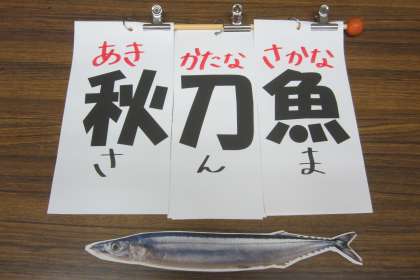 あき かたな さかな
秋 刀 魚
さ ん ま